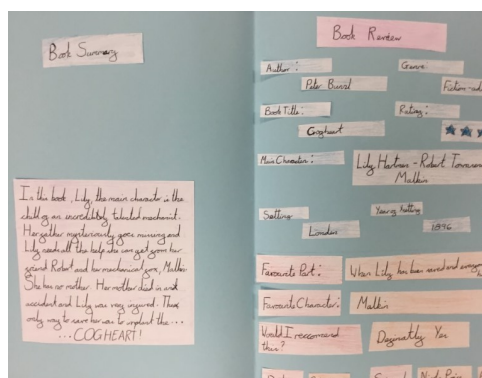 Book Summary
In this book, Lily, the main character is the
child of an incredibly talented mechanist.
Her father mysteriously goes missing and
Lily needs all the help she can get from her
friend Robert and her mechanical fox, Malkin
She has no mother. Her mother died in an
accident and Lily was very injured. Their
only way to save her was to implant the ...
... COGHEART!
Book Review
Author:
Genre
Peter Bunzl
Fiction - ad
Book Title:
Rating:
Cogheart
Main Character:
Lily Hartman - Robert Townsend
Malkin
Setting
Year of Setting
London
1896
Favourite Part:
When Lily has been saved and everyone
Favourite Character:
Malkin
Would I reccomend
this?
Definatly Yes